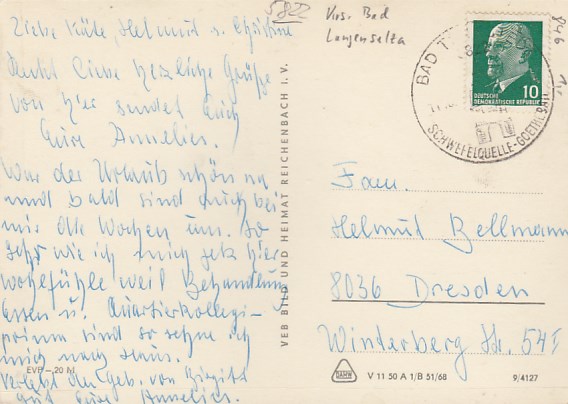 5822
Krs. Bad
Langensalza
Liebe Käte, Helmut u. Christine
Recht liebe herzliche Grüße
von hier sendet Euch
Eure Annelies.
War der Urlaub schön na
und bald sind auch bei
mir die Wochen um. So
sehr wie ich mich jetz hier
wohlfühle weil Behandlung
Essen u. Quartierkollegi-
prima sind so sehne ich
mich nach Haus.
verlebt den Geb. von Birgitt
gut Eure Annelies.
EVP – 20 M
VEB BILD UND HEIMAT REICHENBACH I. V.
BAD T
SCHWEFELQUELLE-GOETHE
10
DEUTSCHE
DEMOKRATISCHE REPUBLIK
Fam.
Helmut Bellmann
8036 Dresden
Winterberg Str. 54 I
V 11 50 A 1/B 51/68
9/4127